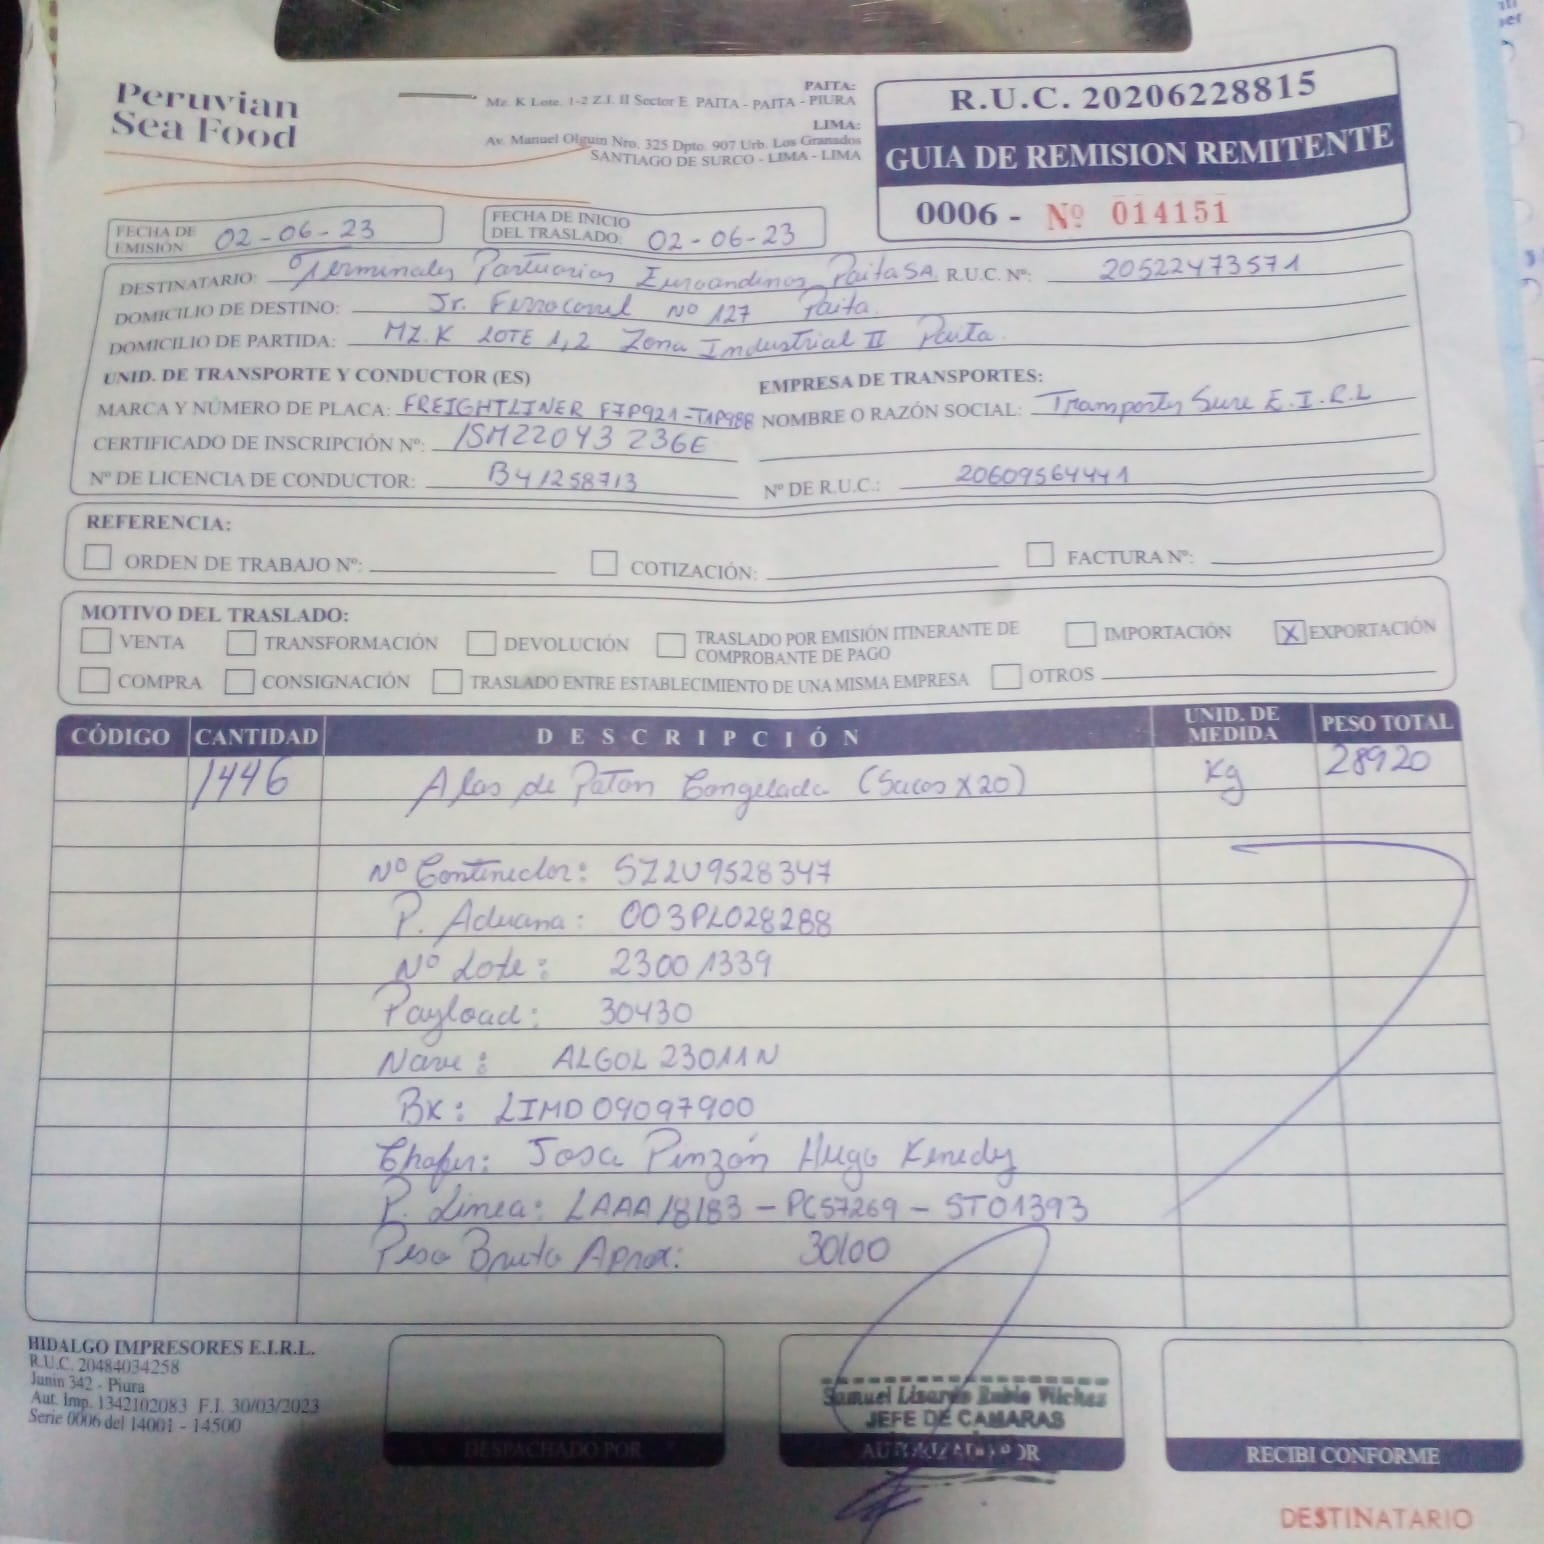 Peruvian
Sea Food
PAITA:
Mz. K Lote. 1-2 Z.I. II Sector E PAITA - PAITA - PIURA
LIMA:
Av. Manuel Olguin Nro. 325 Dpto. 907 Urb. Los Granados
SANTIAGO DE SURCO - LIMA - LIMA
R.U.C. 20206228815
GUIA DE REMISION REMITENTE
0006 - Nº 014151
FECHA DE EMISIÓN: 02-06-23
FECHA DE INICIO DEL TRASLADO: 02-06-23
DESTINATARIO: Terminales Portuarios Euroandinos Paita SA. R.U.C. Nº: 20522473571
DOMICILIO DE DESTINO: Jr. Ferrocarril Nº 127 Paita
DOMICILIO DE PARTIDA: MZ.K LOTE 1,2 Zona Industrial II Paita.
UNID. DE TRANSPORTE Y CONDUCTOR (ES)
EMPRESA DE TRANSPORTES:
MARCA Y NÚMERO DE PLACA: FREIGHTLINER F7P921-T1P988 NOMBRE O RAZÓN SOCIAL: Transportes Sure E.I.R.L
CERTIFICADO DE INSCRIPCIÓN Nº: 15M22043236E
Nº DE LICENCIA DE CONDUCTOR: B41258713 Nº DE R.U.C.: 20609564441
REFERENCIA:
ORDEN DE TRABAJO Nº: COTIZACIÓN: FACTURA Nº:
MOTIVO DEL TRASLADO:
VENTA TRANSFORMACIÓN DEVOLUCIÓN TRASLADO POR EMISIÓN ITINERANTE DE COMPROBANTE DE PAGO IMPORTACIÓN X EXPORTACIÓN
COMPRA CONSIGNACIÓN TRASLADO ENTRE ESTABLECIMIENTO DE UNA MISMA EMPRESA OTROS
CÓDIGO CANTIDAD DESCRIPCIÓN UNID. DE MEDIDA PESO TOTAL
1446 Alas de Poton Congelada (Sacos x 20) Kg 28920
Nº Contenedor: SZLU9528347
P. Aduana: 003PL028288
Nº Lote: 23001339
Payload: 30430
Nave: ALGOL 23011N
BK: LIMD09097900
Chofer: Josa Pinzón Hugo Kenedy
P. Linea: LAAA18183 - PC57269 - ST01393
Peso Bruto Aprox: 30100
HIDALGO IMPRESORES E.I.R.L.
R.U.C. 20484034258
Junin 342 - Piura
Aut. Imp. 1342102083 F.I. 30/03/2023
Serie 0006 del 14001 - 14500
DESPACHADO POR
Samuel Lisardo Rubio Vilchez
JEFE DE CAMARAS
AUTORIZADO POR
RECIBI CONFORME
DESTINATARIO